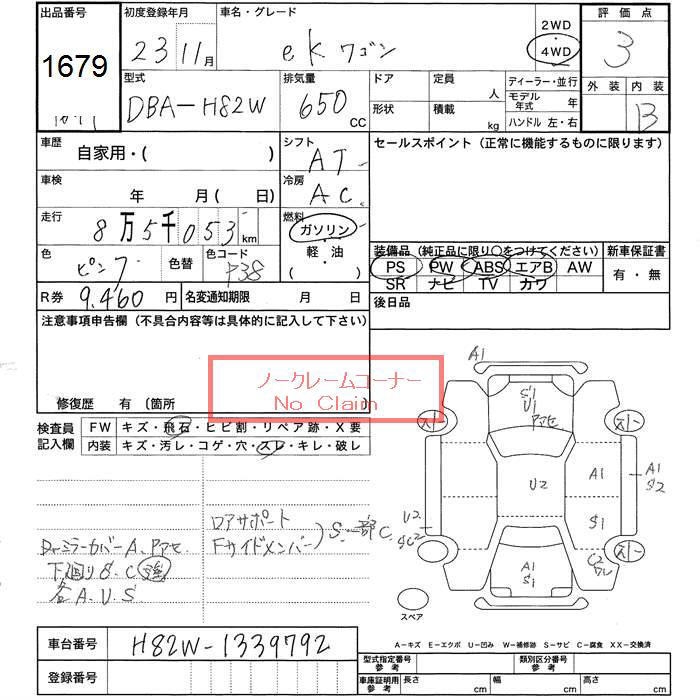 出品番号 初度登録年月 車名・グレード 2WD 評価点
1679 23 11月 eKワゴン ・4WD 3
型式 排気量 ドア 定員 人 ディーラー・並行 外装 内装
DBA-H82W 650 cc 形状 積載 kg モデル年式 年 B
ハンドル 左・右
車歴 自家用・( ) シフト AT セールスポイント (正常に機能するものに限ります)
車検 年 月( 日) 冷房 AC
走行 8万5千053km 燃料 ガソリン・軽油 ( )
色 ピンク 色替 色コード P38
装備品 (純正品に限り○をつけてください) 新車保証書
PS PW ABS エアB AW 有・無
SR ナビ TV カワ
R券 9,460円 名変通知期限 月 日 後日品
注意事項申告欄 (不具合内容等は具体的に記入して下さい)
ノークレームコーナー
No Claim
修復歴 有 〔箇所
検査員記入欄 FW キズ・飛石・ヒビ割・リペア跡・X要
内装 キズ・汚レ・コゲ・穴・スレ・キレ・破レ
A1
S1
U1
アセ
スレー スレー
U2 A1 A1
S2
S1
U2
SC2
C2
ワレ
スレー
A1
S1
スペア
ロアサポート
Fサイドメンバー) S.一部C.
Drミラーカバー A、アセ
下廻り S.C 強
各A.U.S
車台番号 H82W-1339792
登録番号
A-キズ E-エクボ U-凹み W-補修跡 S-サビ C-腐食 XX-交換済
型式指定番号 参考 類別区分番号 参考
車庫証明用 参考 長さ cm 幅 cm 高さ cm